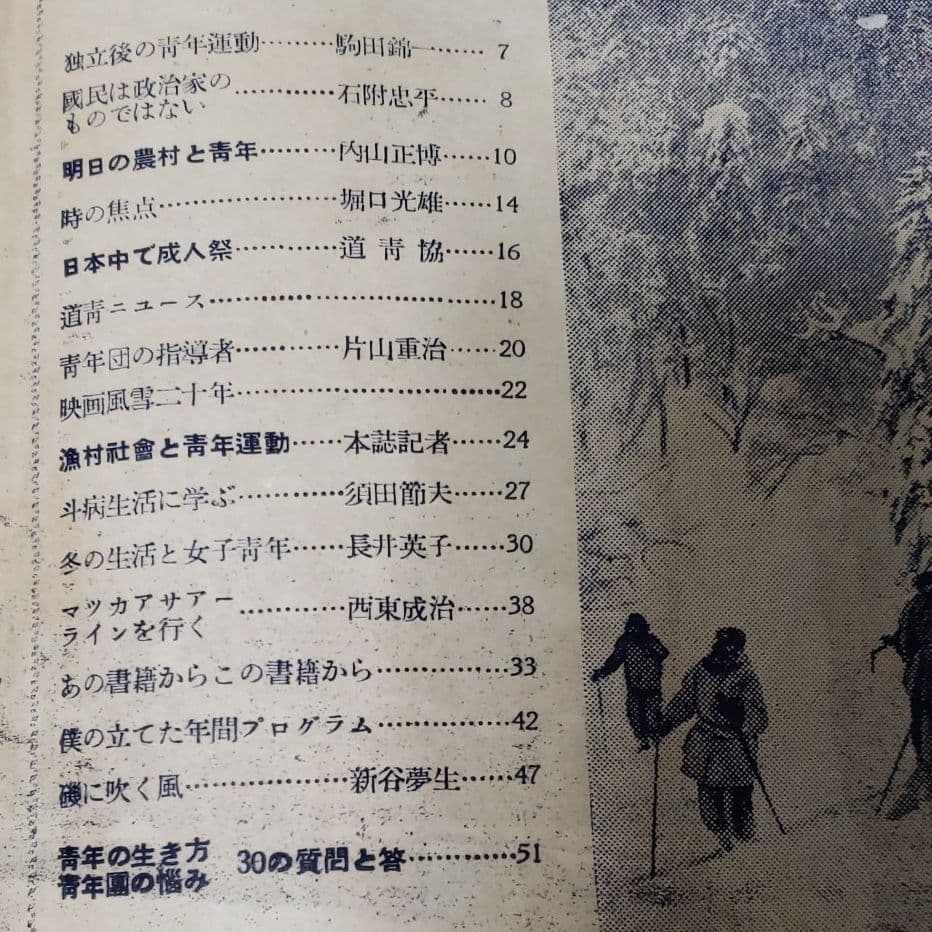 独立後の靑年運動………駒田錦一……7
國民は政治家の
ものではない…………石附忠平……8
明日の農村と靑年………内山正博……10
時の焦点…………………堀口光雄……14
日本中で成人祭…………道靑協……16
道靑ニュース…………………………18
靑年団の指導者…………片山重治……20
映画風雪二十年………………………22
漁村社會と靑年運動……本誌記者……24
斗病生活に学ぶ…………須田節夫……27
冬の生活と女子靑年……長井英子……30
マツカアサアー
ラインを行く…………西東成治……38
あの書籍からこの書籍から……………33
僕の立てた年間プログラム……………42
磯に吹く風………………新谷夢生……47
靑年の生き方
靑年團の悩み
30の質問と答…………51